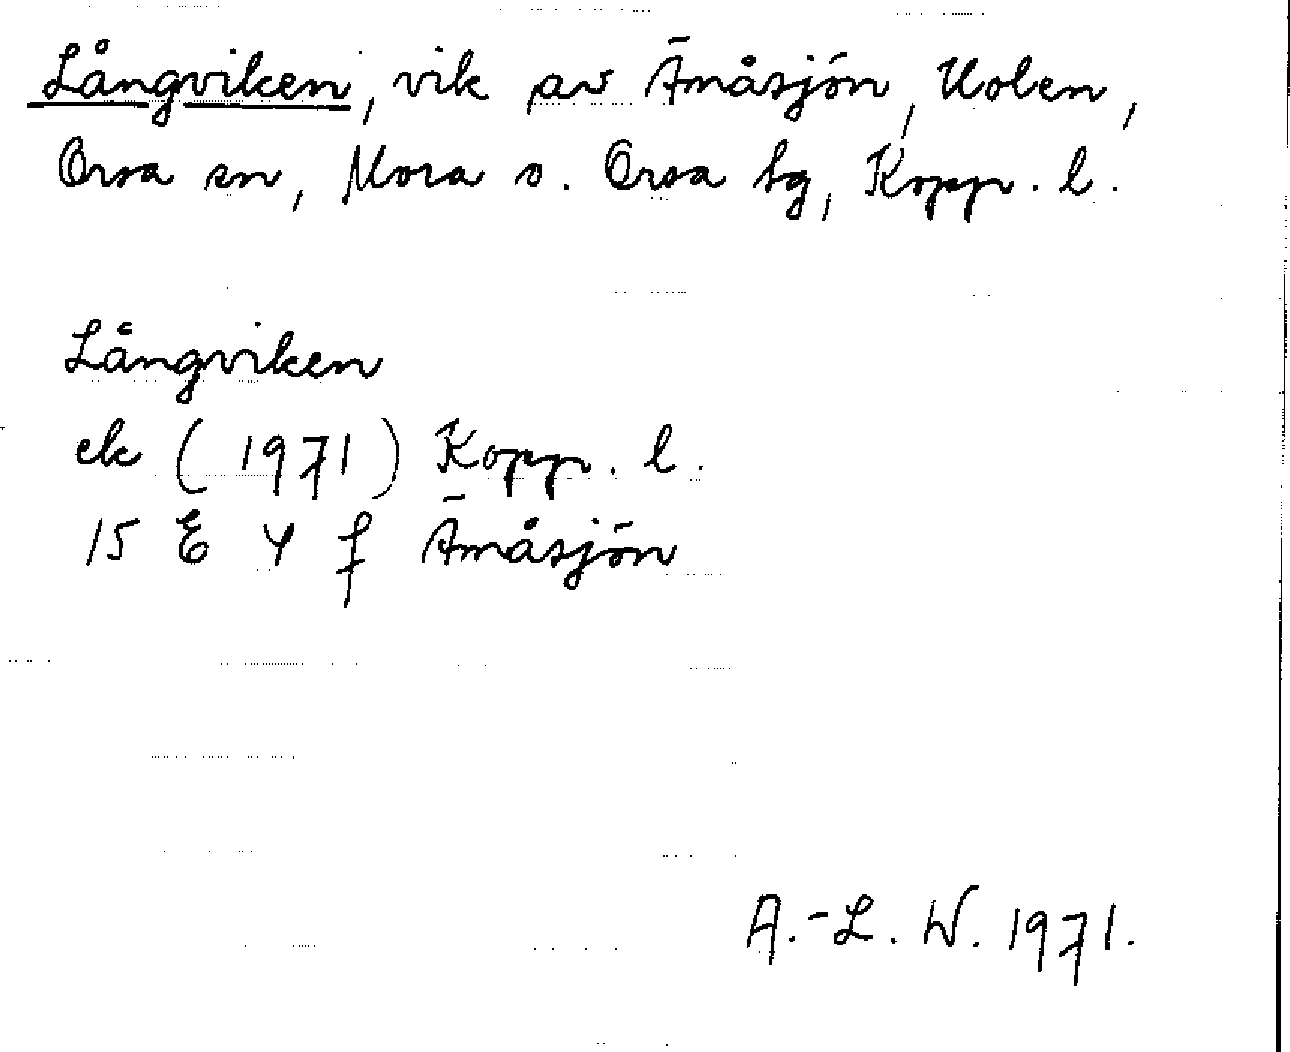 Långviken, vik av Ämåsjön, Uoben,
Orsa sn, Mora o. Orsa tg, Kopp. l.
Långviken
ek (1971) Kopp. l.
15 E 4 f Ämåsjön
A.-L. W. 1971.